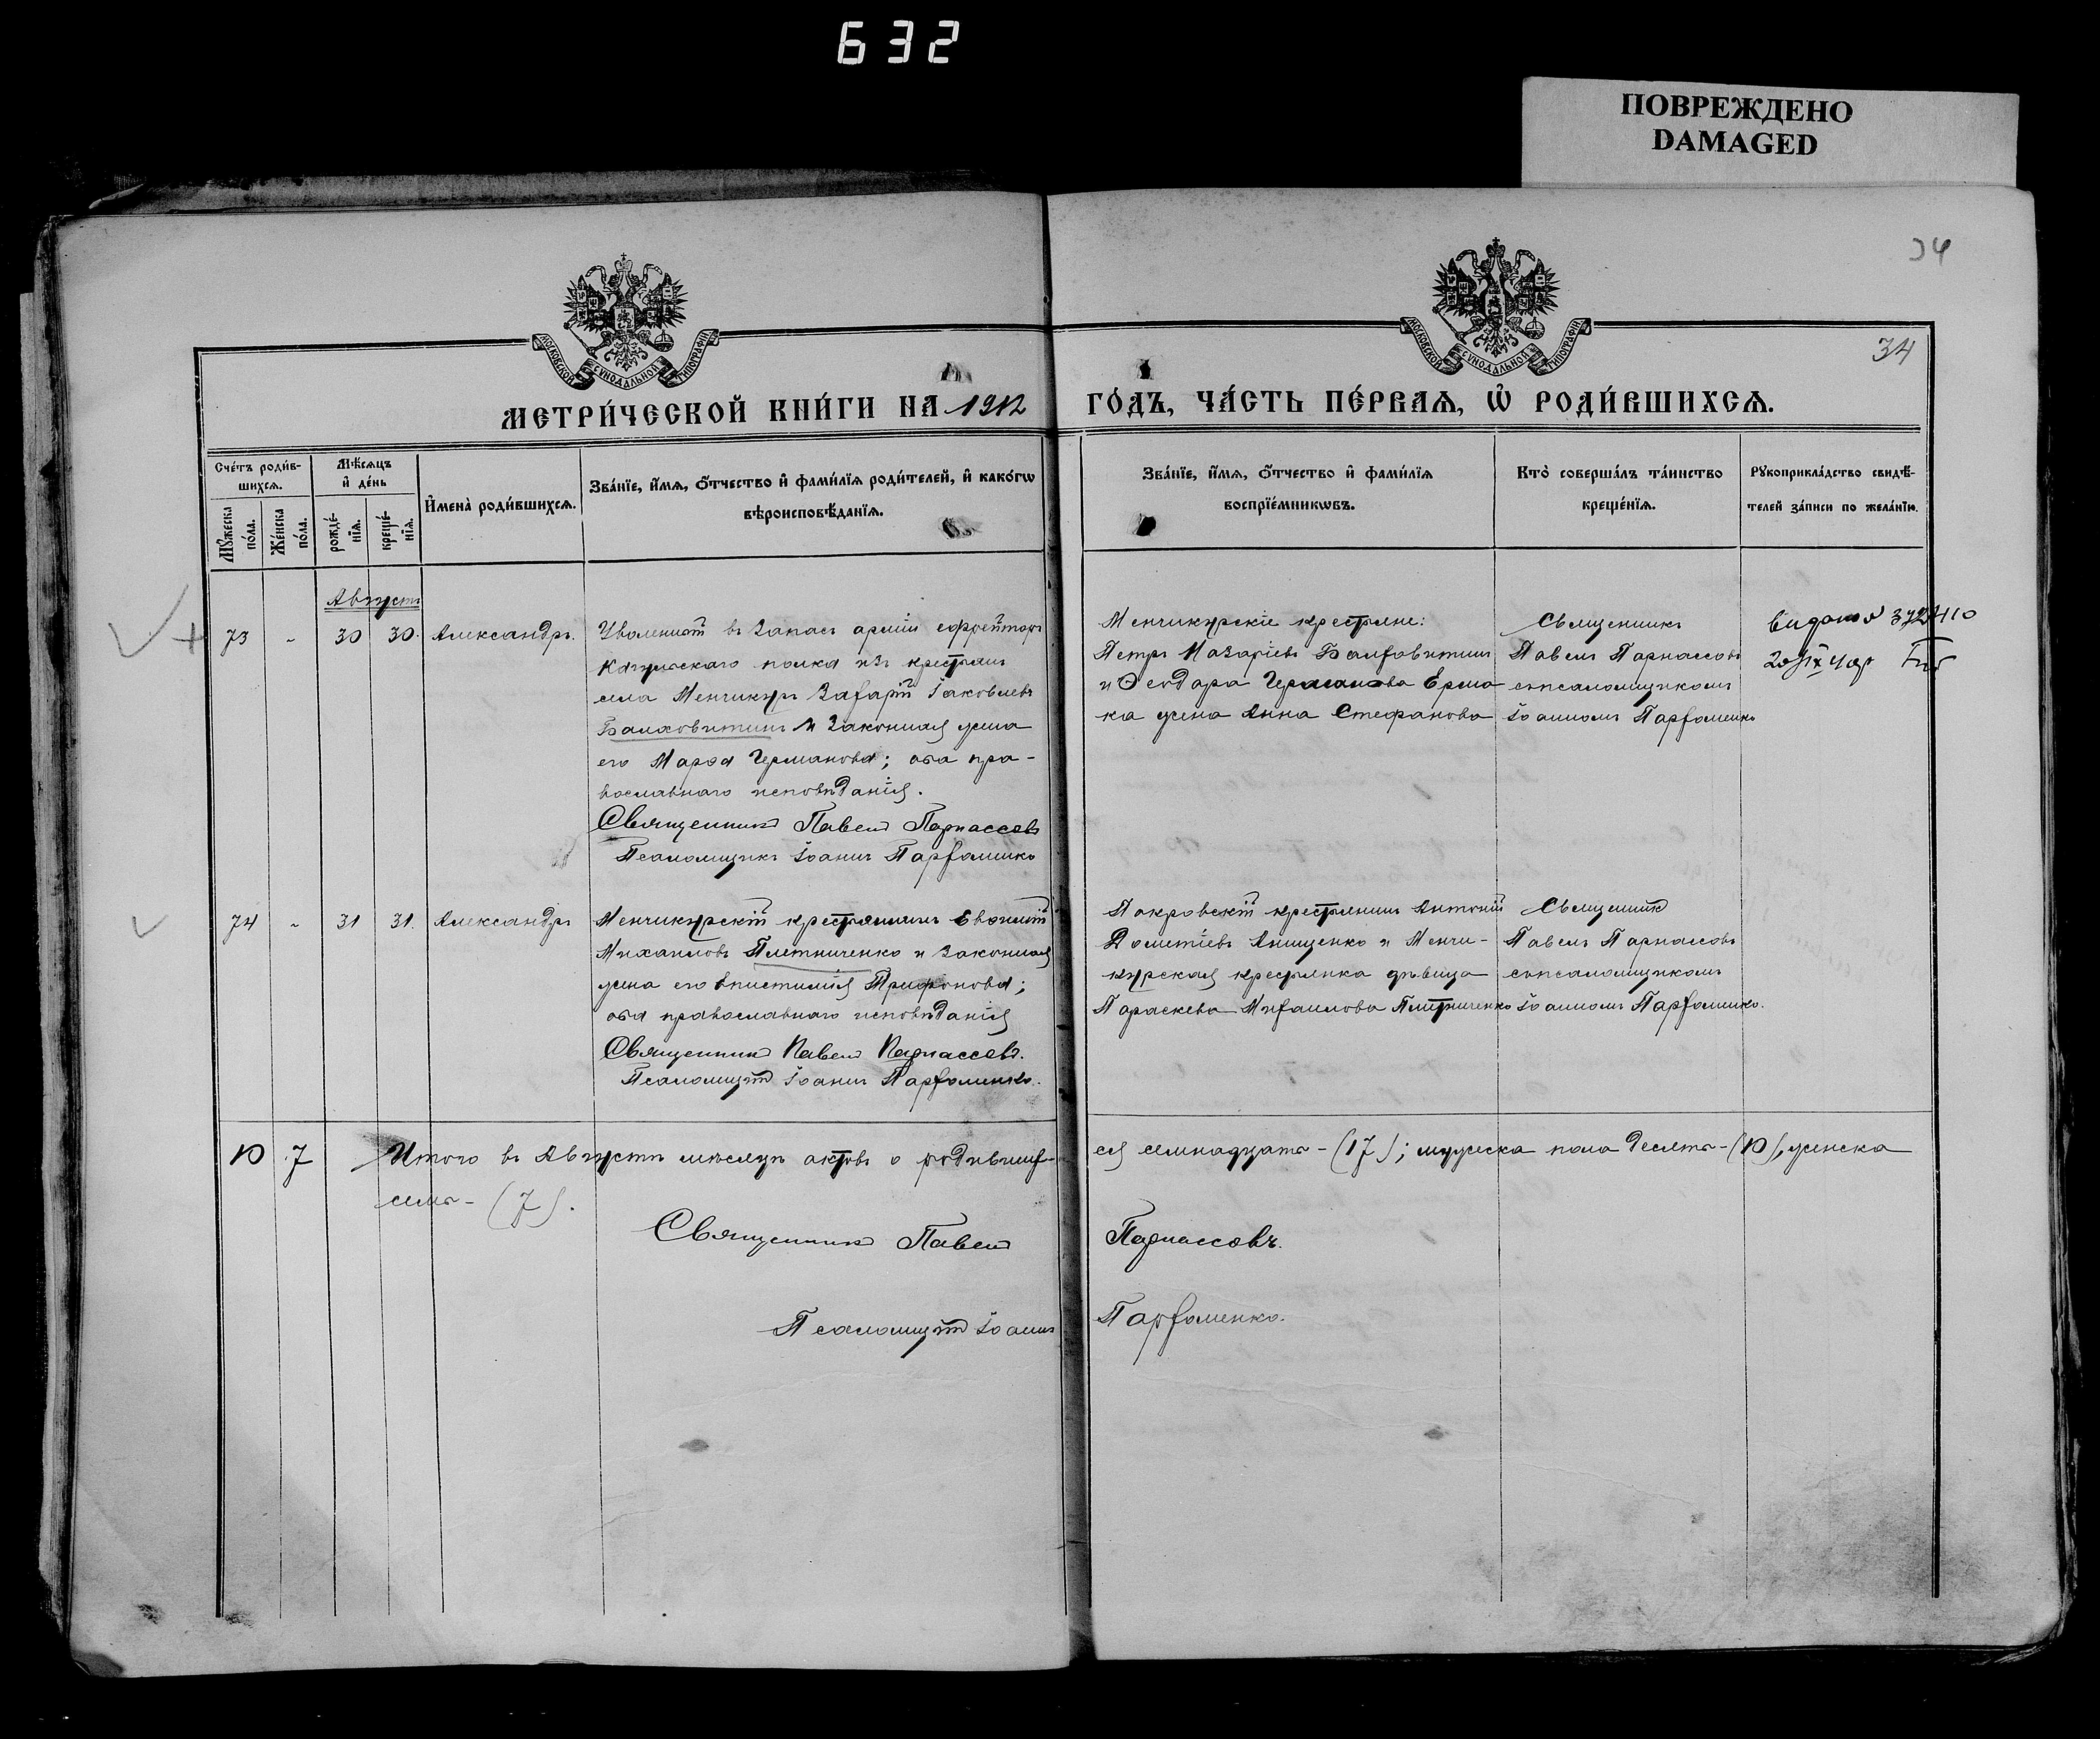 632
ПОВРЕЖДЕНО
DAMAGED
34
34
МОСКОВСКОЙ СѴНОДАЛЬНОЙ ТИПОГРАФІИ
МОСКОВСКОЙ СѴНОДАЛЬНОЙ ТИПОГРАФІИ
МЕТРИ́ЧЕСКОЙ КНИ́ГИ НА 1912 ГО́ДЪ, ЧА́СТЬ ПЕ́РВАѦ, Ѡ҆ РОДИ́ВШИХСѦ.
Сче́тъ роди́в-
шихсѧ.
Мѣ́сѧцъ
и҆ де́нь
Мꙋ́жеска
по́ла.
Же́нска
по́ла.
рожде́-
нїѧ.
креще́-
нїѧ.
И҆мена̀ роди́вшихсѧ.
Зва́нїе, и҆́мѧ, ѻ҆́тчество и҆ фами́лїѧ роди́телей, и҆ како́гѡ
вѣроисповѣ́данїѧ.
Зва́нїе, и҆́мѧ, ѻ҆́тчество и҆ фами́лїѧ
воспрїе́мникѡвъ.
Кто̀ соверша́лъ та́инство
креще́нїѧ.
Рꙋкоприкла́дство свидѣ́-
телей за́писи по жела́нїю.
Августъ
73 - 30 30. Александръ.
Уволенный въ запасъ арміи ефрейторъ
Кагульскаго полка изъ крестьянъ
села Менчикуръ Захарій Іаковлевъ
Балховитинъ и законная жена
его Марѳа Германова; оба пра-
вославнаго исповѣданія.
Священникъ Павелъ Парнассовъ
Псаломщикъ Іоаннъ Пархоменко
Менчикурскіе крестьяне:
Петръ Назаріевъ Балховитинъ
и Ѳеодора Германова Ерма-
ка жена Анна Стефанова
Священникъ
Павелъ Парнассовъ
съ псаломщикомъ
Іоанномъ Пархоменко
74 - 31 31. Александръ
Менчикурскій крестьянинъ Евѳимій
Михаиловъ Плетниченко и законная
жена его Епистимія Трифонова;
оба православнаго исповѣданія
Священникъ Павелъ Парнассовъ.
Псаломщикъ Іоаннъ Пархоменко.
Покровскій крестьянинъ Антоній
Дометіевъ Анищенко и Менчи-
курская крестьянка дѣвица
Параскева Михаилова Плетниченко
Священникъ
Павелъ Парнассовъ
съ псаломщикомъ
Іоанномъ Пархоменко.
10 7 Итого въ Августѣ мѣсяцѣ актовъ о родивших-
ся семнадцать - (17); мужеска пола десять - (10), женска
семь - (7).
Священникъ Павелъ Парнассовъ.
Псаломщикъ Іоаннъ Пархоменко.